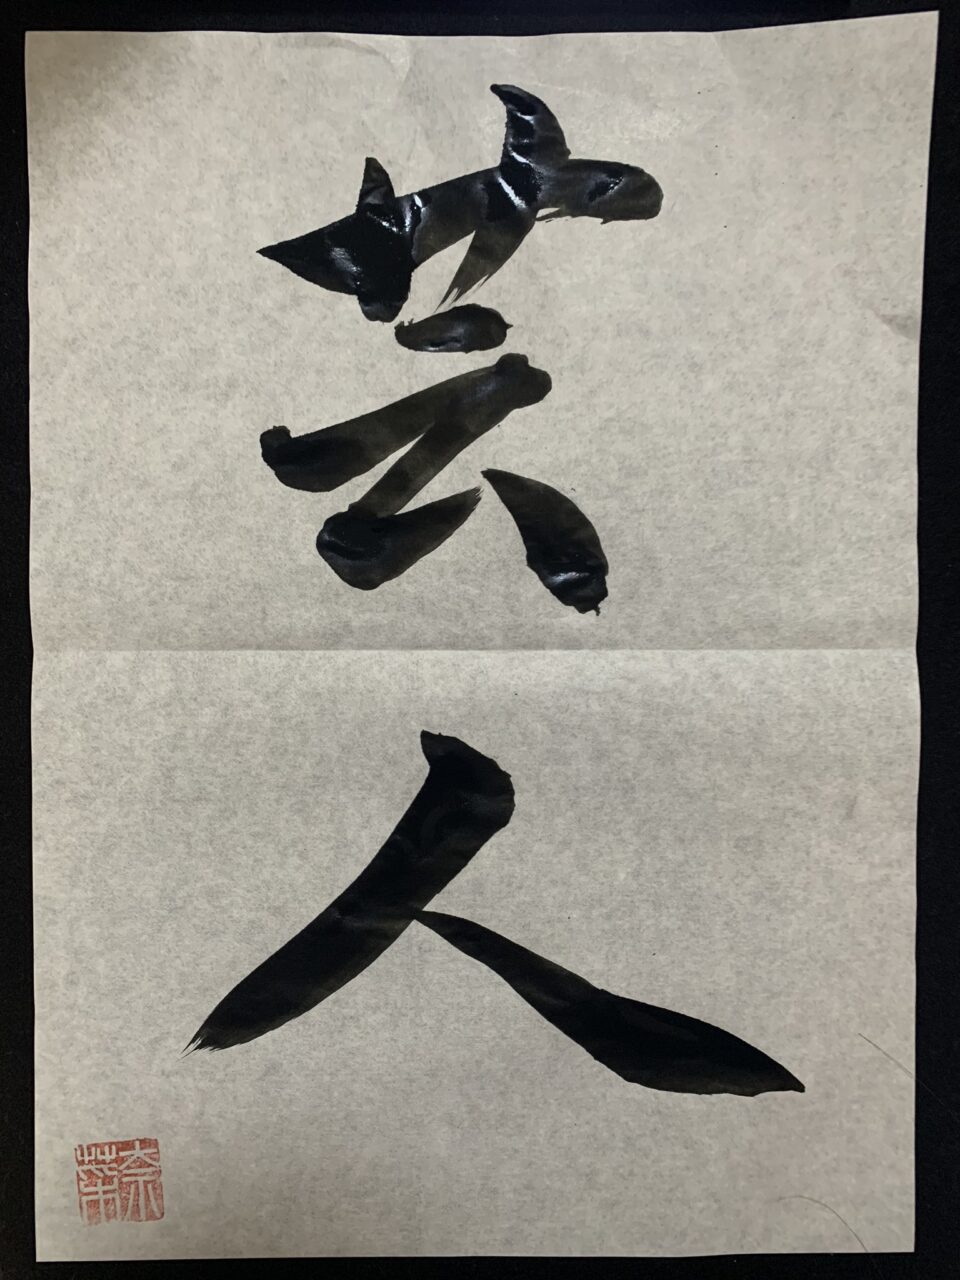 芸人
奈菜